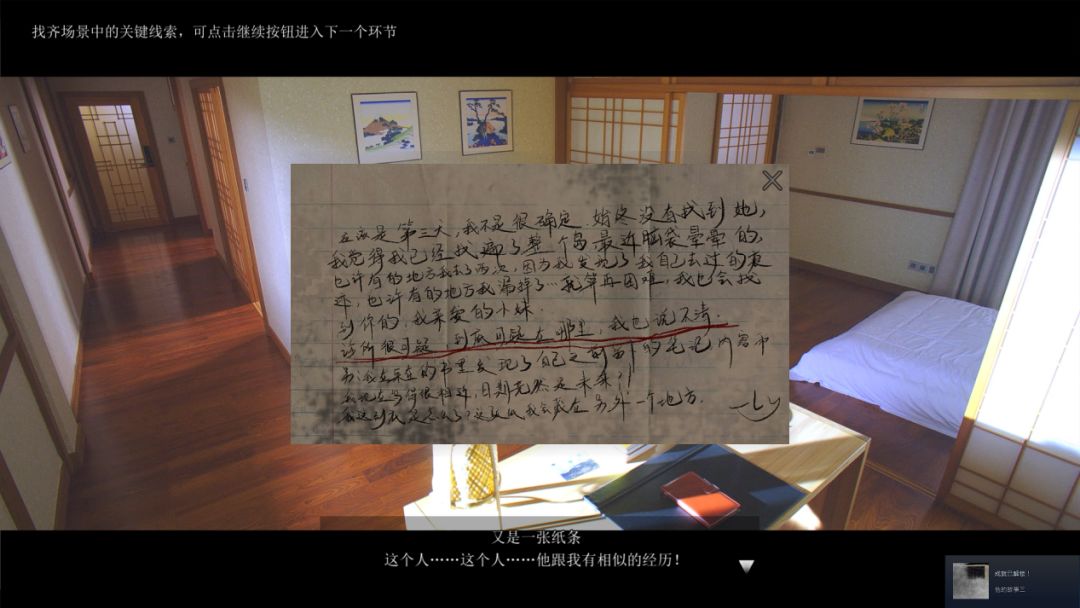 找齐场景中的关键线索，可点击继续按钮进入下一个环节
应该是第三天，我不是很确定．始终没有找到她，
我觉得我已经找遍了整个岛最近脑袋晕晕的，
也许有的地方我去了两次，因为我发现了我自己去过的痕
迹，也许有的地方我漏掉了…我算再困难，我也会找
到你的，我亲爱的小妹．
诊所很可疑 到底可疑在哪里，我也说不清．
另，我在呆在的书里发现了自己之前留的笔记 内容和
我现在写得很相近，日期竟然是未来！！
这到底是怎么了？这张纸我会藏在另外一个地方．
—Ly
又是一张纸条
这个人……这个人……他跟我有相似的经历！
成就已解锁！
他的故事三